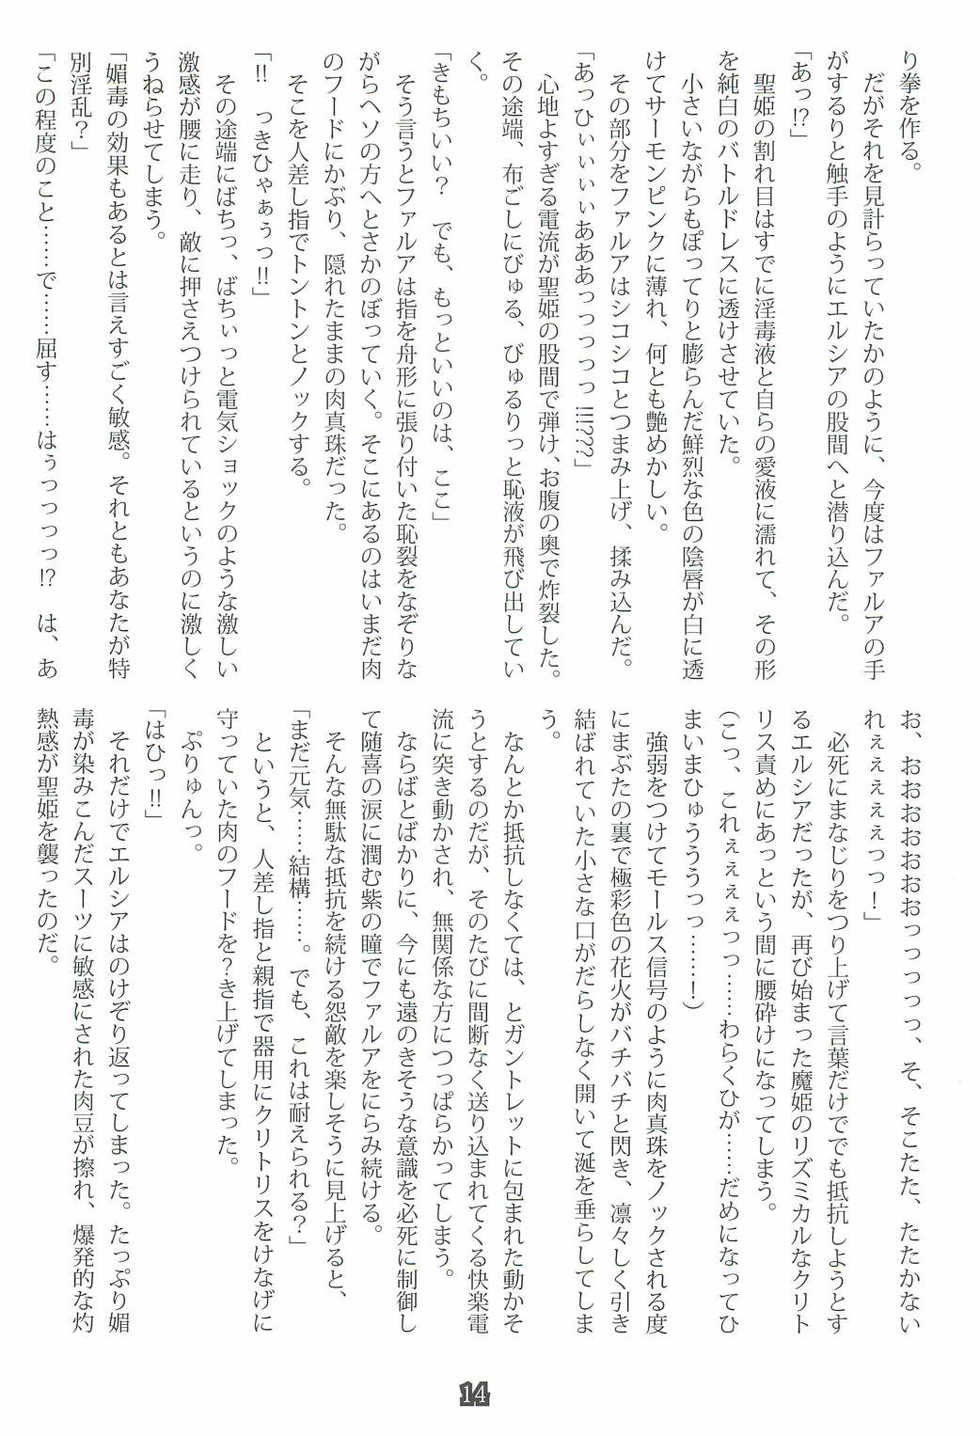 り拳を作る。
だがそれを見計らっていたかのように、今度はファルアの手
がするりと触手のようにエルシアの股間へと潜り込んだ。
「あっ!?」
聖姫の割れ目はすでに淫毒液と自らの愛液に濡れて、その形
を純白のバトルドレスに透けさせていた。
小さいながらもぽってりと膨らんだ鮮烈な色の陰唇が白に透
けてサーモンピンクに薄れ、何とも艶めかしい。
その部分をファルアはシコシコとつまみ上げ、揉み込んだ。
「あっひぃぃぃぃあああっっっっっ!!!???」
心地よすぎる電流が聖姫の股間で弾け、お腹の奥で炸裂した。
その途端、布ごしにびゅる、びゅるりっと恥液が飛び出してい
く。
「きもちいい?　でも、もっといいのは、ここ」
そう言うとファルアは指を舟形に張り付いた恥裂をなぞりな
がらヘソの方へとさかのぼっていく。そこにあるのはいまだ肉
のフードにかぶり、隠れたままの肉真珠だった。
そこを人差し指でトントンとノックする。
「!!　っきひゃぁぅっ!!」
その途端にばちっ、ばちぃっと電気ショックのような激しい
激感が腰に走り、敵に押さえつけられているというのに激しく
うねらせてしまう。
「媚毒の効果もあるとは言えすごく敏感。それともあなたが特
別淫乱?」
「この程度のこと……で……屈す……はぅっっっっ!?　は、あ
お、おおおおおおおっっっっっ、そ、そこたた、たたかない
れぇぇぇぇぇっっ!」
必死にまなじりをつり上げて言葉だけででも抵抗しようとす
るエルシアだったが、再び始まった魔姫のリズミカルなクリト
リス責めにあっという間に腰砕けになってしまう。
(こっ、これぇぇぇぇっっ……わらくひが……だめになってひ
まいまひゅうううっっ………!)
強弱をつけてモールス信号のように肉真珠をノックされる度
にまぶたの裏で極彩色の花火がバチバチと閃き、凛々しく引き
結ばれていた小さな口がだらしなく開いて涎を垂らしてしま
う。
なんとか抵抗しなくては、とガントレットに包まれた動かそ
うとするのだが、そのたびに間断なく送り込まれてくる快楽電
流に突き動かされ、無関係な方につっぱらかってしまう。
ならばとばかりに、今にも遠のきそうな意識を必死に制御し
て随喜の涙に潤む紫の瞳でファルアをにらみ続ける。
そんな無駄な抵抗を続ける怨敵を楽しそうに見上げると、
「まだ元気……結構……。でも、これは耐えられる?」
というと、人差し指と親指で器用にクリトリスをけなげに
守っていた肉のフードを?き上げてしまった。
ぷりゅんっ。
「はひっ!!」
それだけでエルシアはのけぞり返ってしまった。たっぷり媚
毒が染みこんだスーツに敏感にされた肉豆が擦れ、爆発的な灼
熱感が聖姫を襲ったのだ。
14